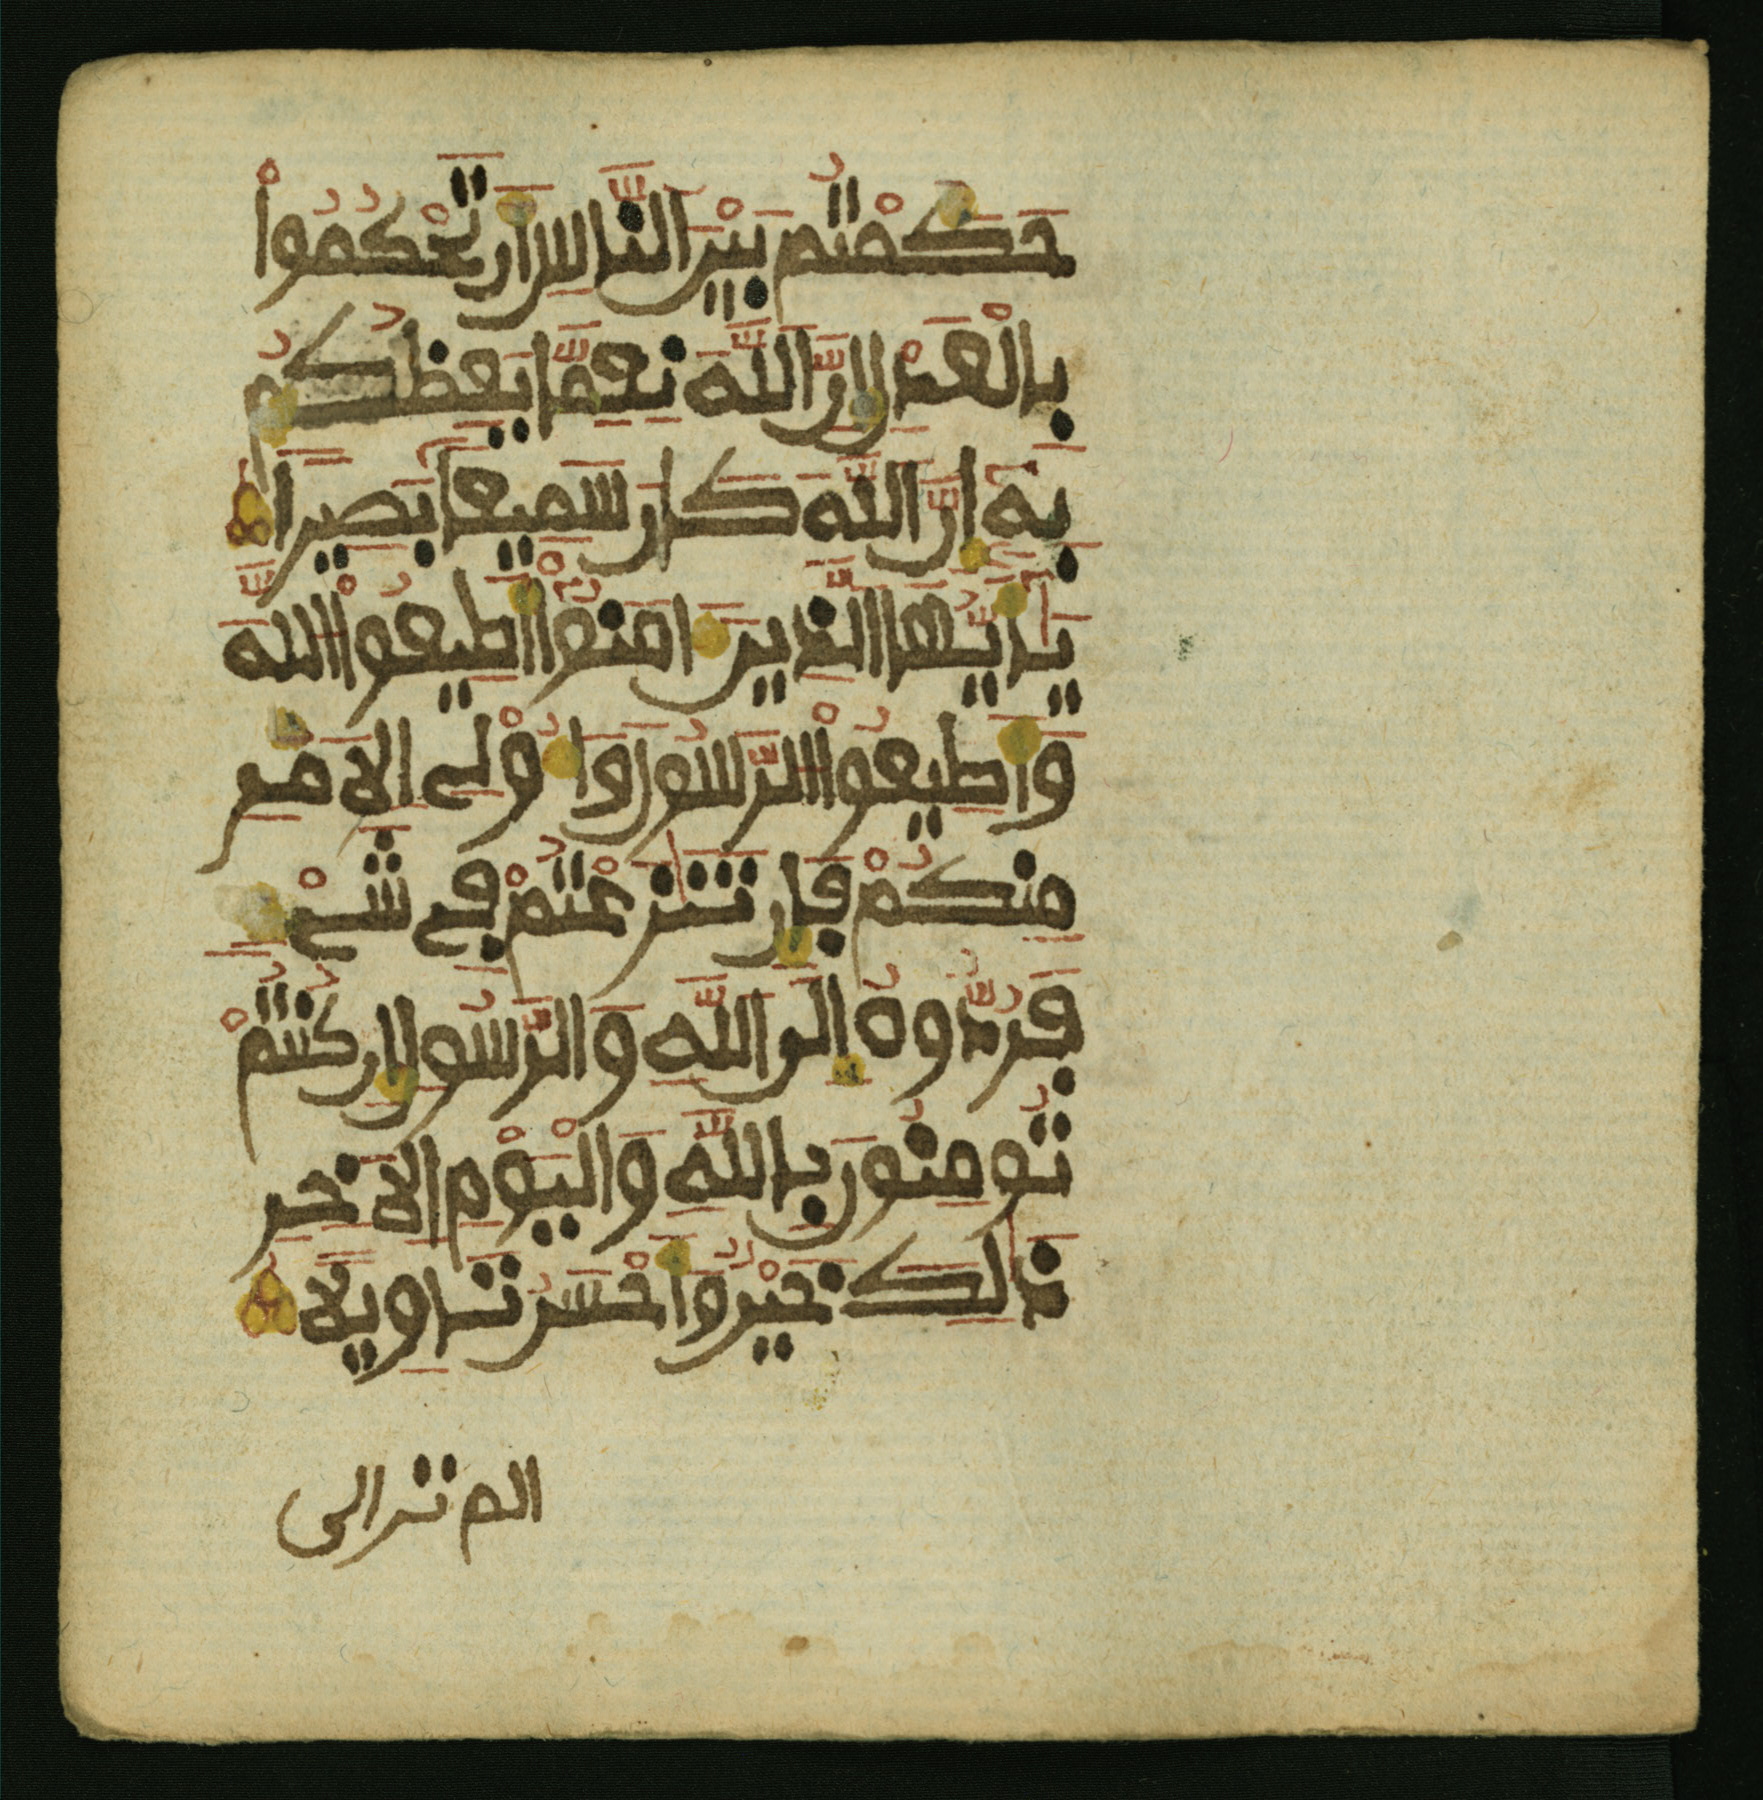 حَكَمْتُم بَيْنَ اَلنَّاسِ أَن تَحْكُمُواْ
بِالْعَدْلِ إِنَّ اَللَّهَ نِعِمَّا يَعِظُكُم
بِهِ إِنَّ اَللَّهَ كَانَ سَمِيعاً بَصِيراً
يَٰأَيُّهَا اَلذِينَ ءَامَنُواْ أَطِيعُواْ اُللَّهَ
وَأَطِيعُواْ اُلرَّسُولَ وَأُوْلِے اِلَامْرِ
مِنكُمْ فَإِن تَنَٰزَعْتُمْ فِے شَےْءٍ
فَرُدُّوهُ إِلَى اَللَّهِ وَالرَّسُولِ إِن كُنتُمْ
تُومِنُونَ بِاللَّهِ وَالْيَوْمِ اِلَاخِرِ
ذَٰلِكَ خَيْرٌ وَأَحْسَنُ تَاوِيلاً
الم تر الى